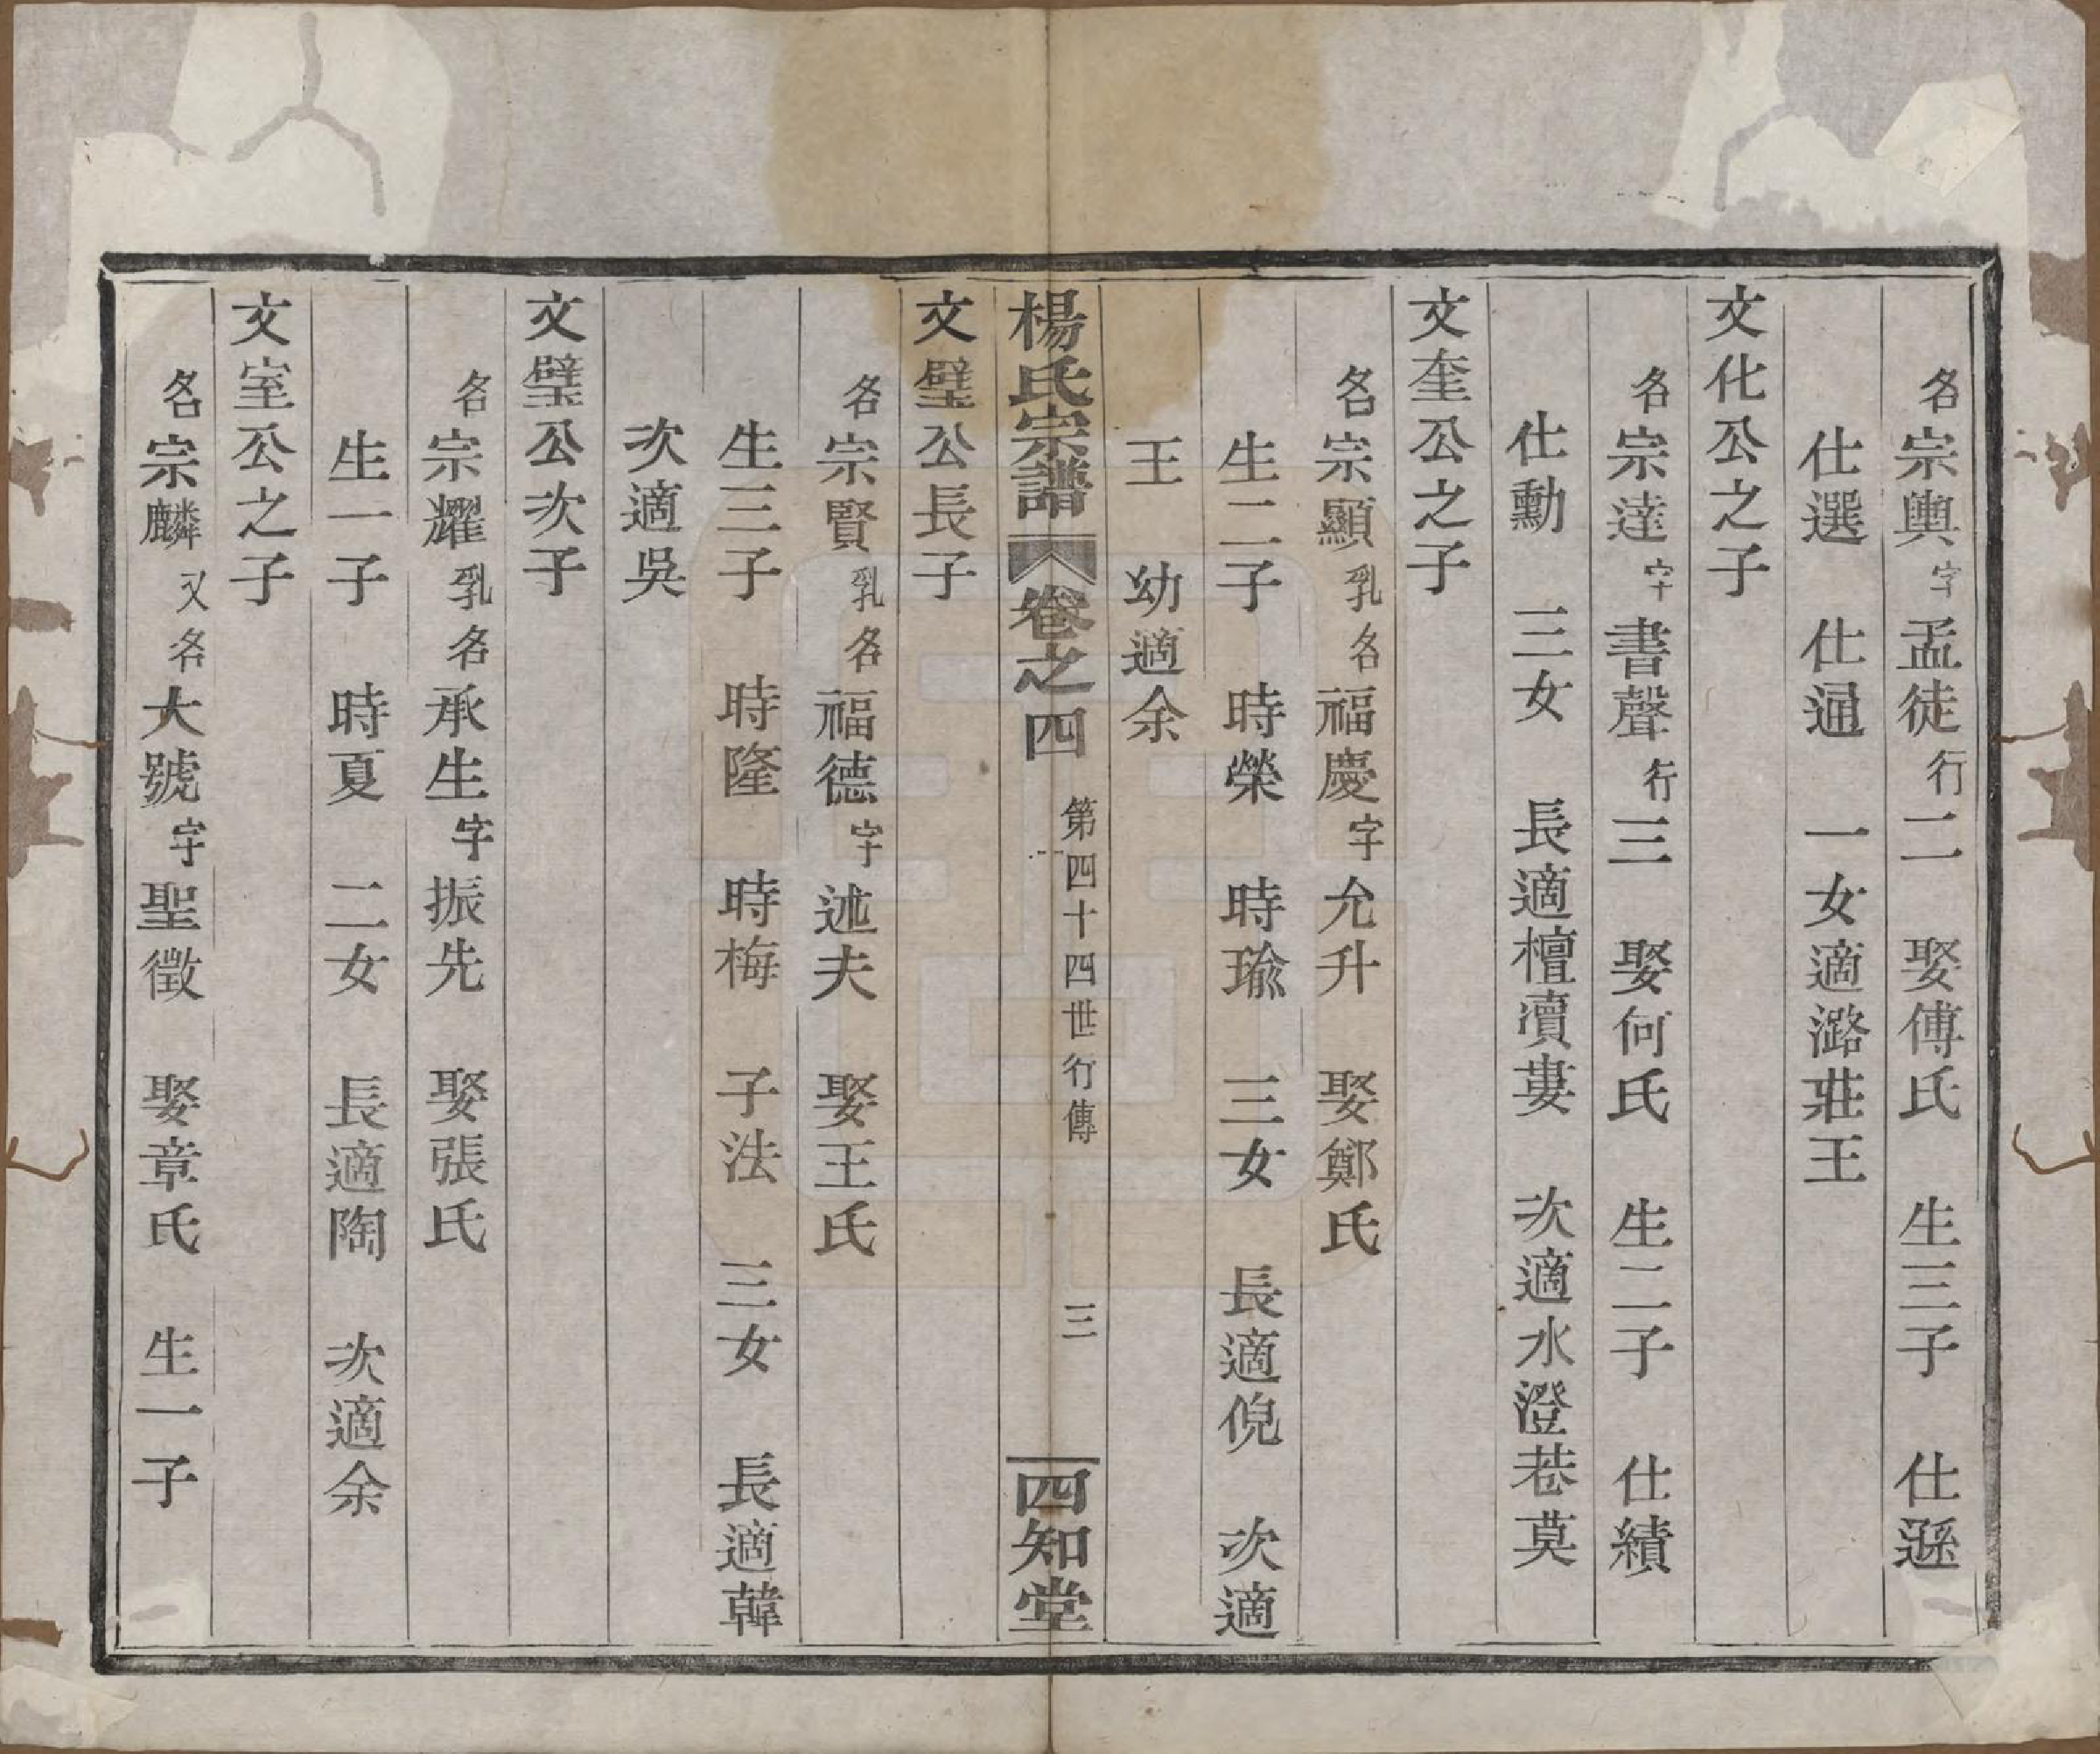 名宗輿字孟徒行二 娶傅氏 生三子 仕遜
仕選 仕通 一女適潞莊王
文化公之子
名宗達字書聲行三 娶何氏 生二子 仕績
仕勳 三女 長適檀瀆婁 次適水澄巷莫
文奎公之子
名宗顯乳名福慶字允升 娶鄭氏
生二子 時榮 時瑜 三女 長適倪 次適
王 幼適余
楊氏宗譜 卷之四 第四十四世行傳 三 四知堂
文璧公長子
名宗賢乳名福德字述夫 娶王氏
生三子 時隆 時梅 子法 三女 長適韓
次適吳
文璧公次子
名宗耀乳名承生字振先 娶張氏
生一子 時夏 二女 長適陶 次適余
文室公之子
名宗麟又名大號字聖徵 娶章氏 生一子